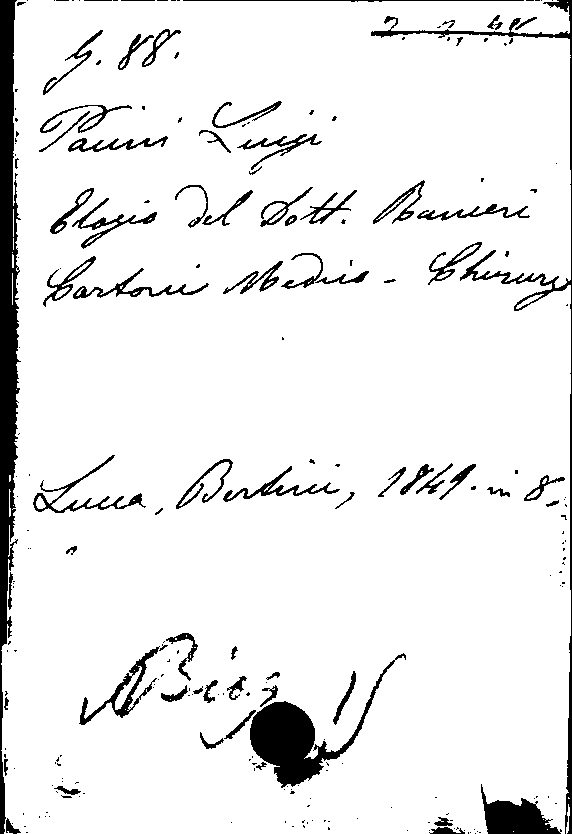 G. 88.
Pacini Luigi
Elogio del Dott. Ranieri
Cartoni Medico - Chirurgo
Lucca, Bertini, 1849. in 8.
Biog